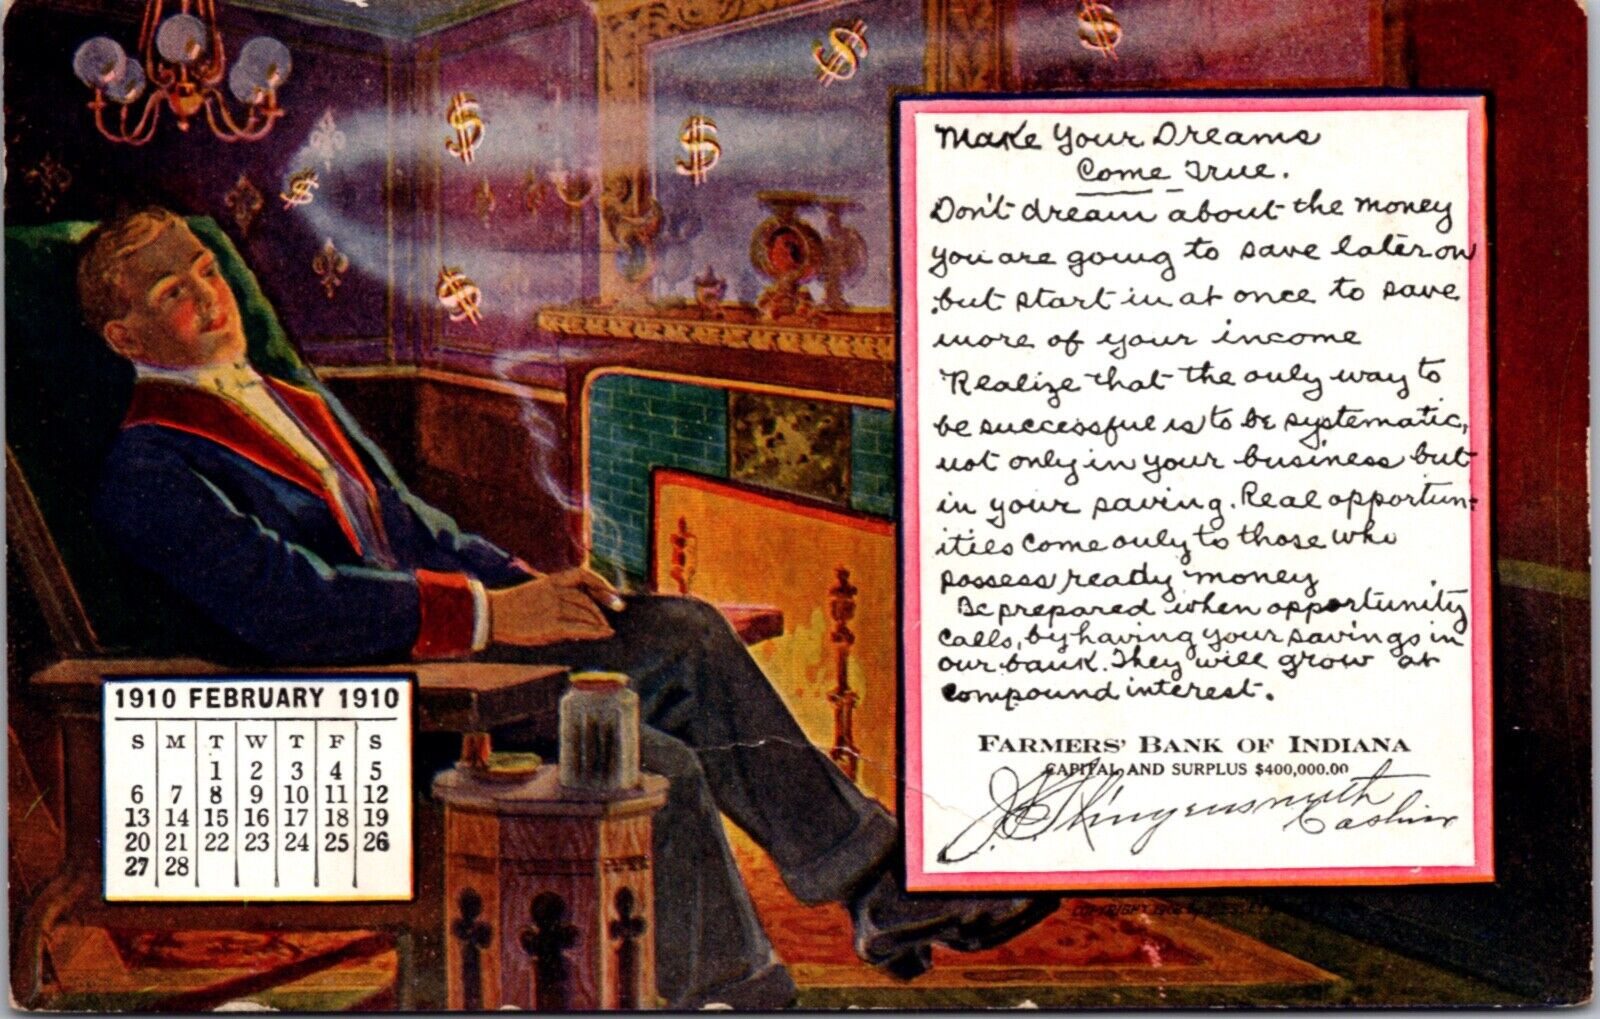 Make Your Dreams
Come True.
Don't dream about the money
you are going to save later on
but start in at once to save
more of your income
Realize that the only way to
be successful is to be systematic,
not only in your business but
in your saving. Real opportun-
ities come only to those who
possess ready money
Be prepared when opportunity
calls, by having your savings in
our bank. They will grow at
compound interest.
FARMERS' BANK OF INDIANA
CAPITAL AND SURPLUS $400,000.00
Cashier
1910 FEBRUARY 1910
S M T W T F S
1 2 3 4 5
6 7 8 9 10 11 12
13 14 15 16 17 18 19
20 21 22 23 24 25 26
27 28
COPYRIGHT
$
$
$
$
$
$